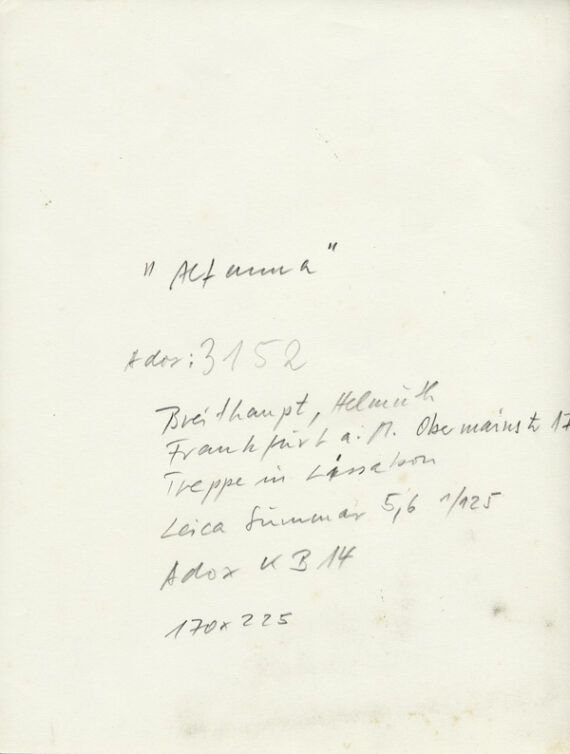 " Alfama "
Adox: 3152
Breithaupt, Helmuth
Frankfurt a. M. Obermainstr 17
Treppe in Lissabon
Leica Summar 5,6 1/125
Adox KB 14
170x225